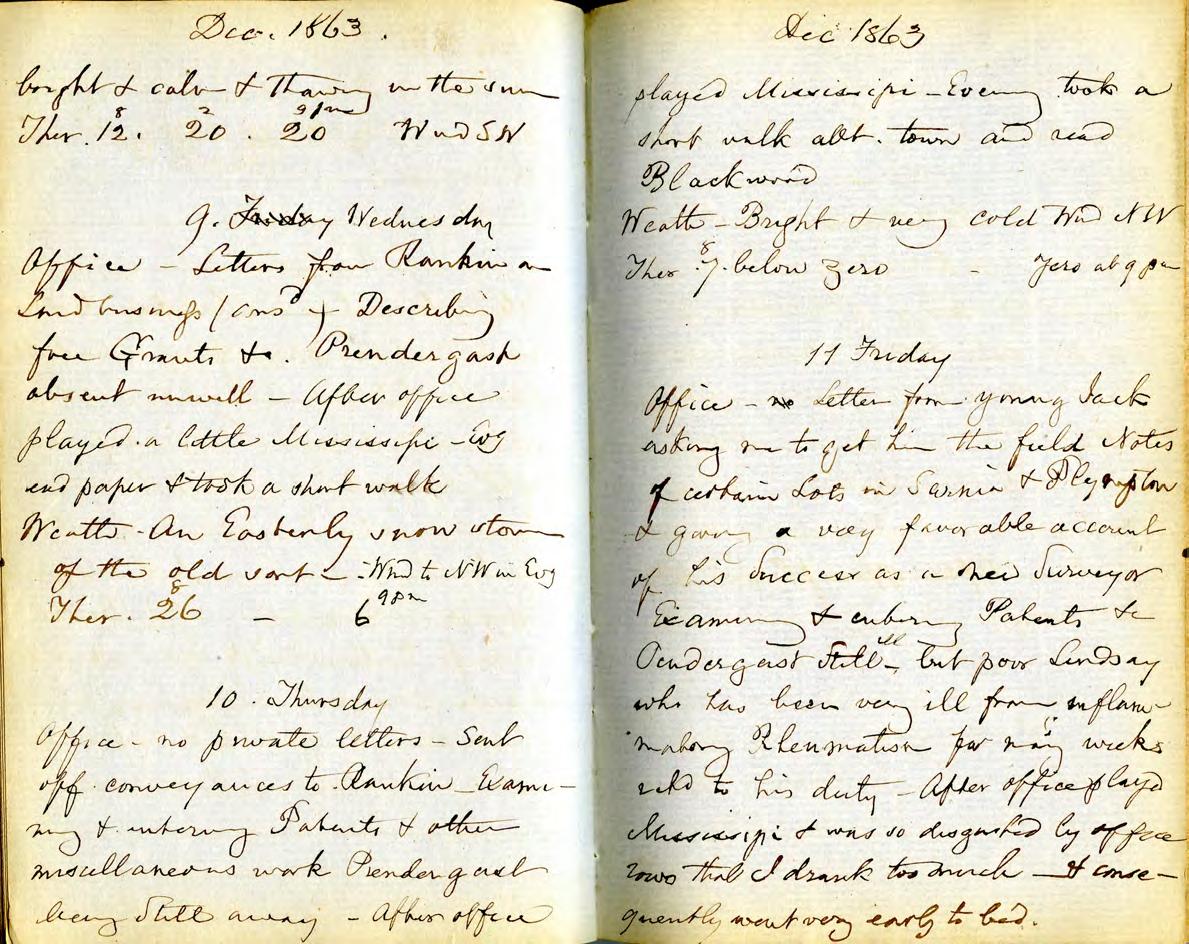 Dec. 1863.
bright & calm & Thawing in the sun
8 2 9pm
Ther. 12. 20. 20 Wind SW
9. Friday Wednesday
Office - Letters from Rankin on
Land business Describing
free Grants &c. Prendergast
absent unwell - After office
played a little Mississipi - Evg
read paper & took a short walk
Weathr - An Easterly snow storm
of the old sort - Wind to NW in Evg
8 9pm
Ther. 26 - 6
10. Thursday
Office - no private letters - Sent
off conveyances to Rankin - Exami-
ning & entering Patents & other
miscellaneous work Prendergast
being still away - After office
Dec 1863
played Mississipi - Evening took a
short walk abt. town and read
Blackwood
Weathr - Bright & very cold Wind NW
8
Ther. 7. below zero - Zero at 9 pm
11 Friday
Office - no Letter from young Jack
asking me to get him the field Notes
of certain Lots in Sarnia & Plympton
& giving a very favorable account
of his Success as a new Surveyor
Examining & entering Patents &c
Pendergast still ill - but poor Lindsay
who has been very ill from inflam-
matory Rheumatism for many weeks
retd to his duty - After office played
Mississipi & was so disgusted by office
rows that I drank too much - & conse-
quently went very early to bed.